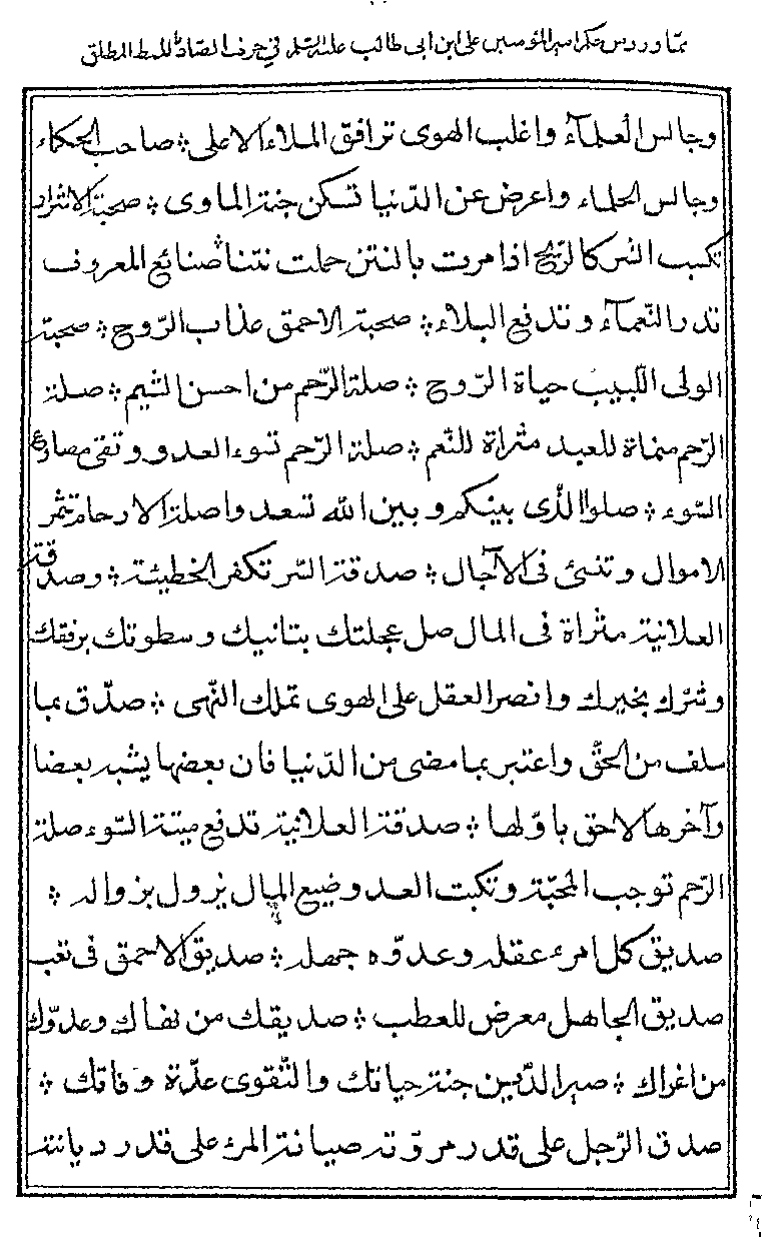 مما ورد من حكم امير المؤمنين على ابن ابى طالب عليه السلم فى حرف الصاد باللفظ المطلق
وجالس العلمآء واغلب الهوى ترافق الملاء الاعلى ⁘ صاحب الحكماء
وجالس الحلماء واعرض عن الدّنيا تسكن جنة الماوى ⁘ صحبة الاشرار
تكسب الشر كالرّيح اذا مرت بالنتن حملت نتنا ⁘ صنائع المعروف
تدر النّعمآء وتدفع البلاء ⁘ صحبة الاحمق عذاب الرّوح ⁘ صحبة
الولى اللّبيب حياة الرّوح ⁘ صلة الرّحم من احسن الشيم ⁘ صلة
الرّحم منماة للعبد مثراة للنّعم ⁘ صلة الرّحم تسوء العدو وتقى مصارع
السّوء ⁘ صلوا الّذى بينكم وبين الله تسعدوا صلة الارحام تثمر
الاموال وتنسئ فى الآجال ⁘ صدقة السّر تكفر الخطيئة ⁘ وصدقة
العلانية مثراة فى المال صل عجلتك بتانيك وسطوتك برفقك
وشرّك بخيرك وانصر العقل على الهوى تملك النّهى ⁘ صدّق بما
سلف من الحقّ واعتبر بما مضى من الدّنيا فان بعضها يشبه بعضا
وآخرها لاحق باوّلها ⁘ صدقة العلانية تدفع ميتة السّوء صلة
الرّحم توجب المحبّة وتكبت العدو ضيع المال يزول بزواله ⁘
صديق كل امرء عقله وعدوّه جهله ⁘ صديق الاحمق فى تعب
صديق الجاهل معرض للعطب ⁘ صديقك من نهاك وعدوّك
من اغراك ⁘ صبر الدّين جنة حياتك والتّقوى عدّة وفاتك ⁘
صدق الرّجل على قدر مروّته صيانة المرء على قدر ديانته